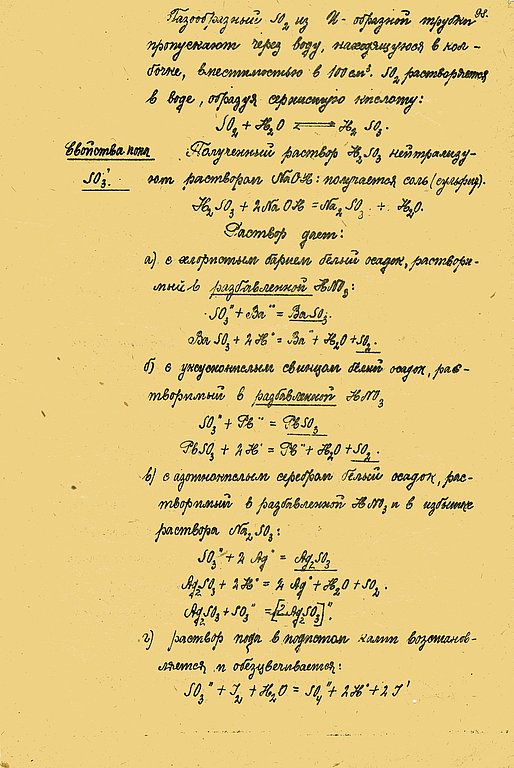 98.
Газообразный SO₂ из U-образной трубки
пропускают через воду, находящуюся в кол-
бочке, вместимостью в 100 см³. SO₂ растворяется
в воде, образуя сернистую кислоту:
SO₂ + H₂O ⇄ H₂SO₃.
Свойства иона
SO₃''.
Полученный раствор H₂SO₃ нейтрализу-
ют раствором NaOH: получается соль (сульфит).
H₂SO₃ + 2NaOH = Na₂SO₃ + H₂O.
Раствор дает:
а) с хлористым барием белый осадок, раствори-
мый в разбавленной HNO₃:
SO₃'' + Ba¨ = BaSO₃.
BaSO₃ + 2H˙ = Ba¨ + H₂O + SO₂.
б) с уксуснокислым свинцом белый осадок, рас-
творимый в разбавленной HNO₃
SO₃'' + Pb¨ = PbSO₃
PbSO₃ + 2H˙ = Pb¨ + H₂O + SO₂.
в) с азотнокислым серебром белый осадок, рас-
творимый в разбавленной HNO₃ и в избытке
раствора Na₂SO₃:
SO₃'' + 2Ag˙ = Ag₂SO₃
Ag₂SO₃ + 2H˙ = 2Ag˙ + H₂O + SO₂.
Ag₂SO₃ + SO₃'' = [2AgSO₃]''.
г) раствор иода в иодистом калии восстанов-
ляется и обезцвечивается:
SO₃'' + J₂ + H₂O = SO₄'' + 2H˙ + 2J'